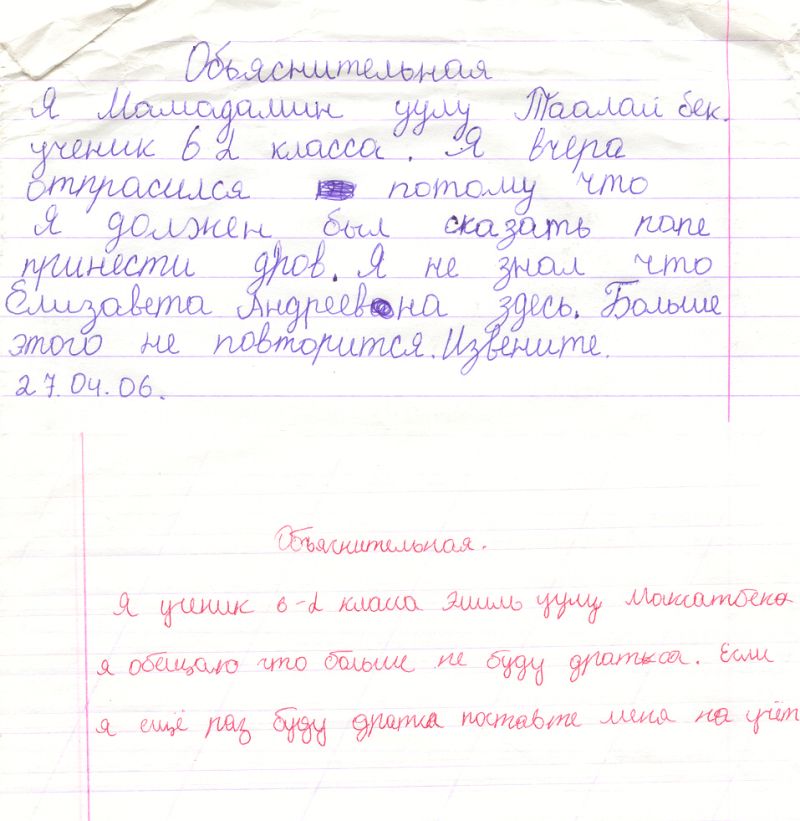 Объяснительная
Я Мамадамин уулу Таалай бек.
ученик 6 2 класса. Я вчера
отпрасился потому что
я должен был сказать папе
принести дров. Я не знал что
Елизавета Андреевна здесь. Больше
этого не повторится. Извените.
27.04.06.
Объяснительная.
Я ученик 6-2 класса Эшиль уулу Максатбек
я обещаю что больше не буду драться. Если
я ещё раз буду дратка поставте меня на учёт